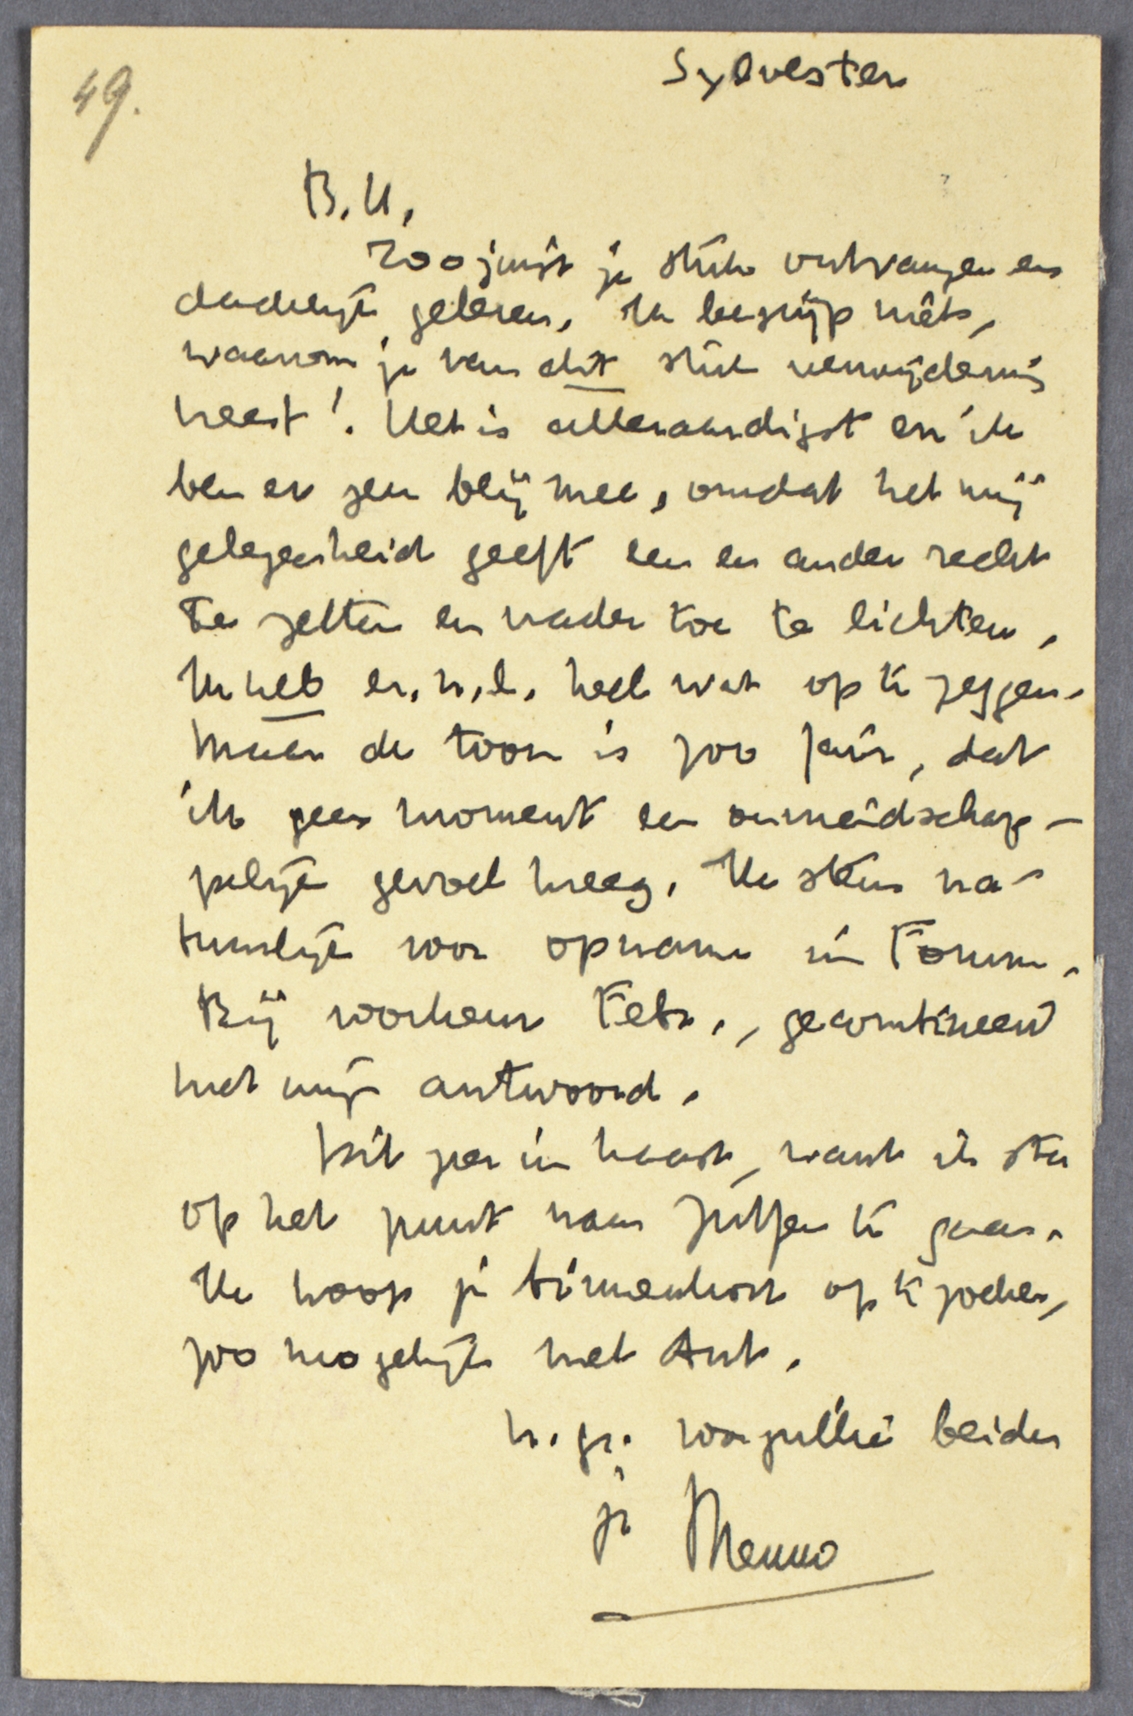 49.
Sylvester
B.H,
Zoojuist je stuk ontvangen en
dadelijk gelezen. Ik begrijp niets,
waarom je van dit stuk verwijdering
vreest! Het is alleraardigst en ik
ben er zeer blij mee, omdat het mij
gelegenheid geeft een en ander recht
te zetten en nader toe te lichten.
Ik heb er, n.l. heel wat op te zeggen.
Maar de toon is zoo fair, dat
ik geen moment een onvriendschap-
pelijk gevoel kreeg. Ik stem na-
tuurlijk voor opname in Forum.
Bij voorkeur Febr., gecombineerd
met mijn antwoord.
Dit zeer in haast, want ik sta
op het punt naar Zutfen te gaan.
Ik hoop je binnenkort op te zoeken,
zoo mogelijk met Ant.
h.gr. voor jullie beiden
je Menno